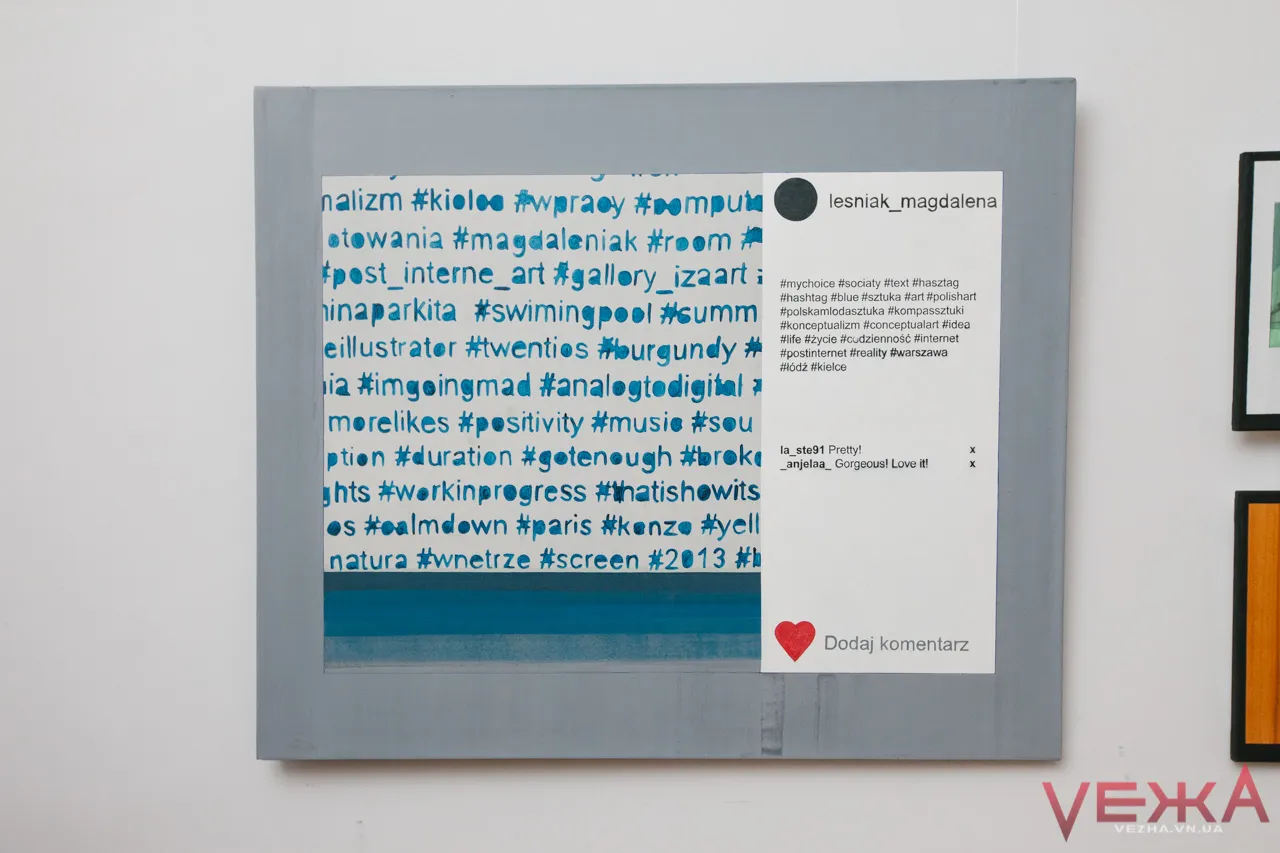 nalizm #kielce #wpracy #comput
otowania #magdaleniak #room #
#post_interne_art #gallery_izaart
ninaparkita #swimingpool #summ
eillustrator #twenties #burgundy #
ia #imgoingmad #analogtodigital
morelikes #positivity #music #sou
ption #duration #gotenough #broke
ghts #workinprogress #thatishowits
os #calmdown #paris #kenzo #yell
natura #wnetrze #screen #2013 #b
lesniak_magdalena
#mychoice #sociaty #text #hasztag
#hashtag #blue #sztuka #art #polishart
#polskamlodasztuka #kompassztuki
#konceptualizm #conceptualart #idea
#life #życie #codzienność #internet
#postinternet #reality #warszawa
#łódź #kielce
la_ste91 Pretty! x
_anjelaa_ Gorgeous! Love it! x
Dodaj komentarz
VEЖA
VEZHA.VN.UA